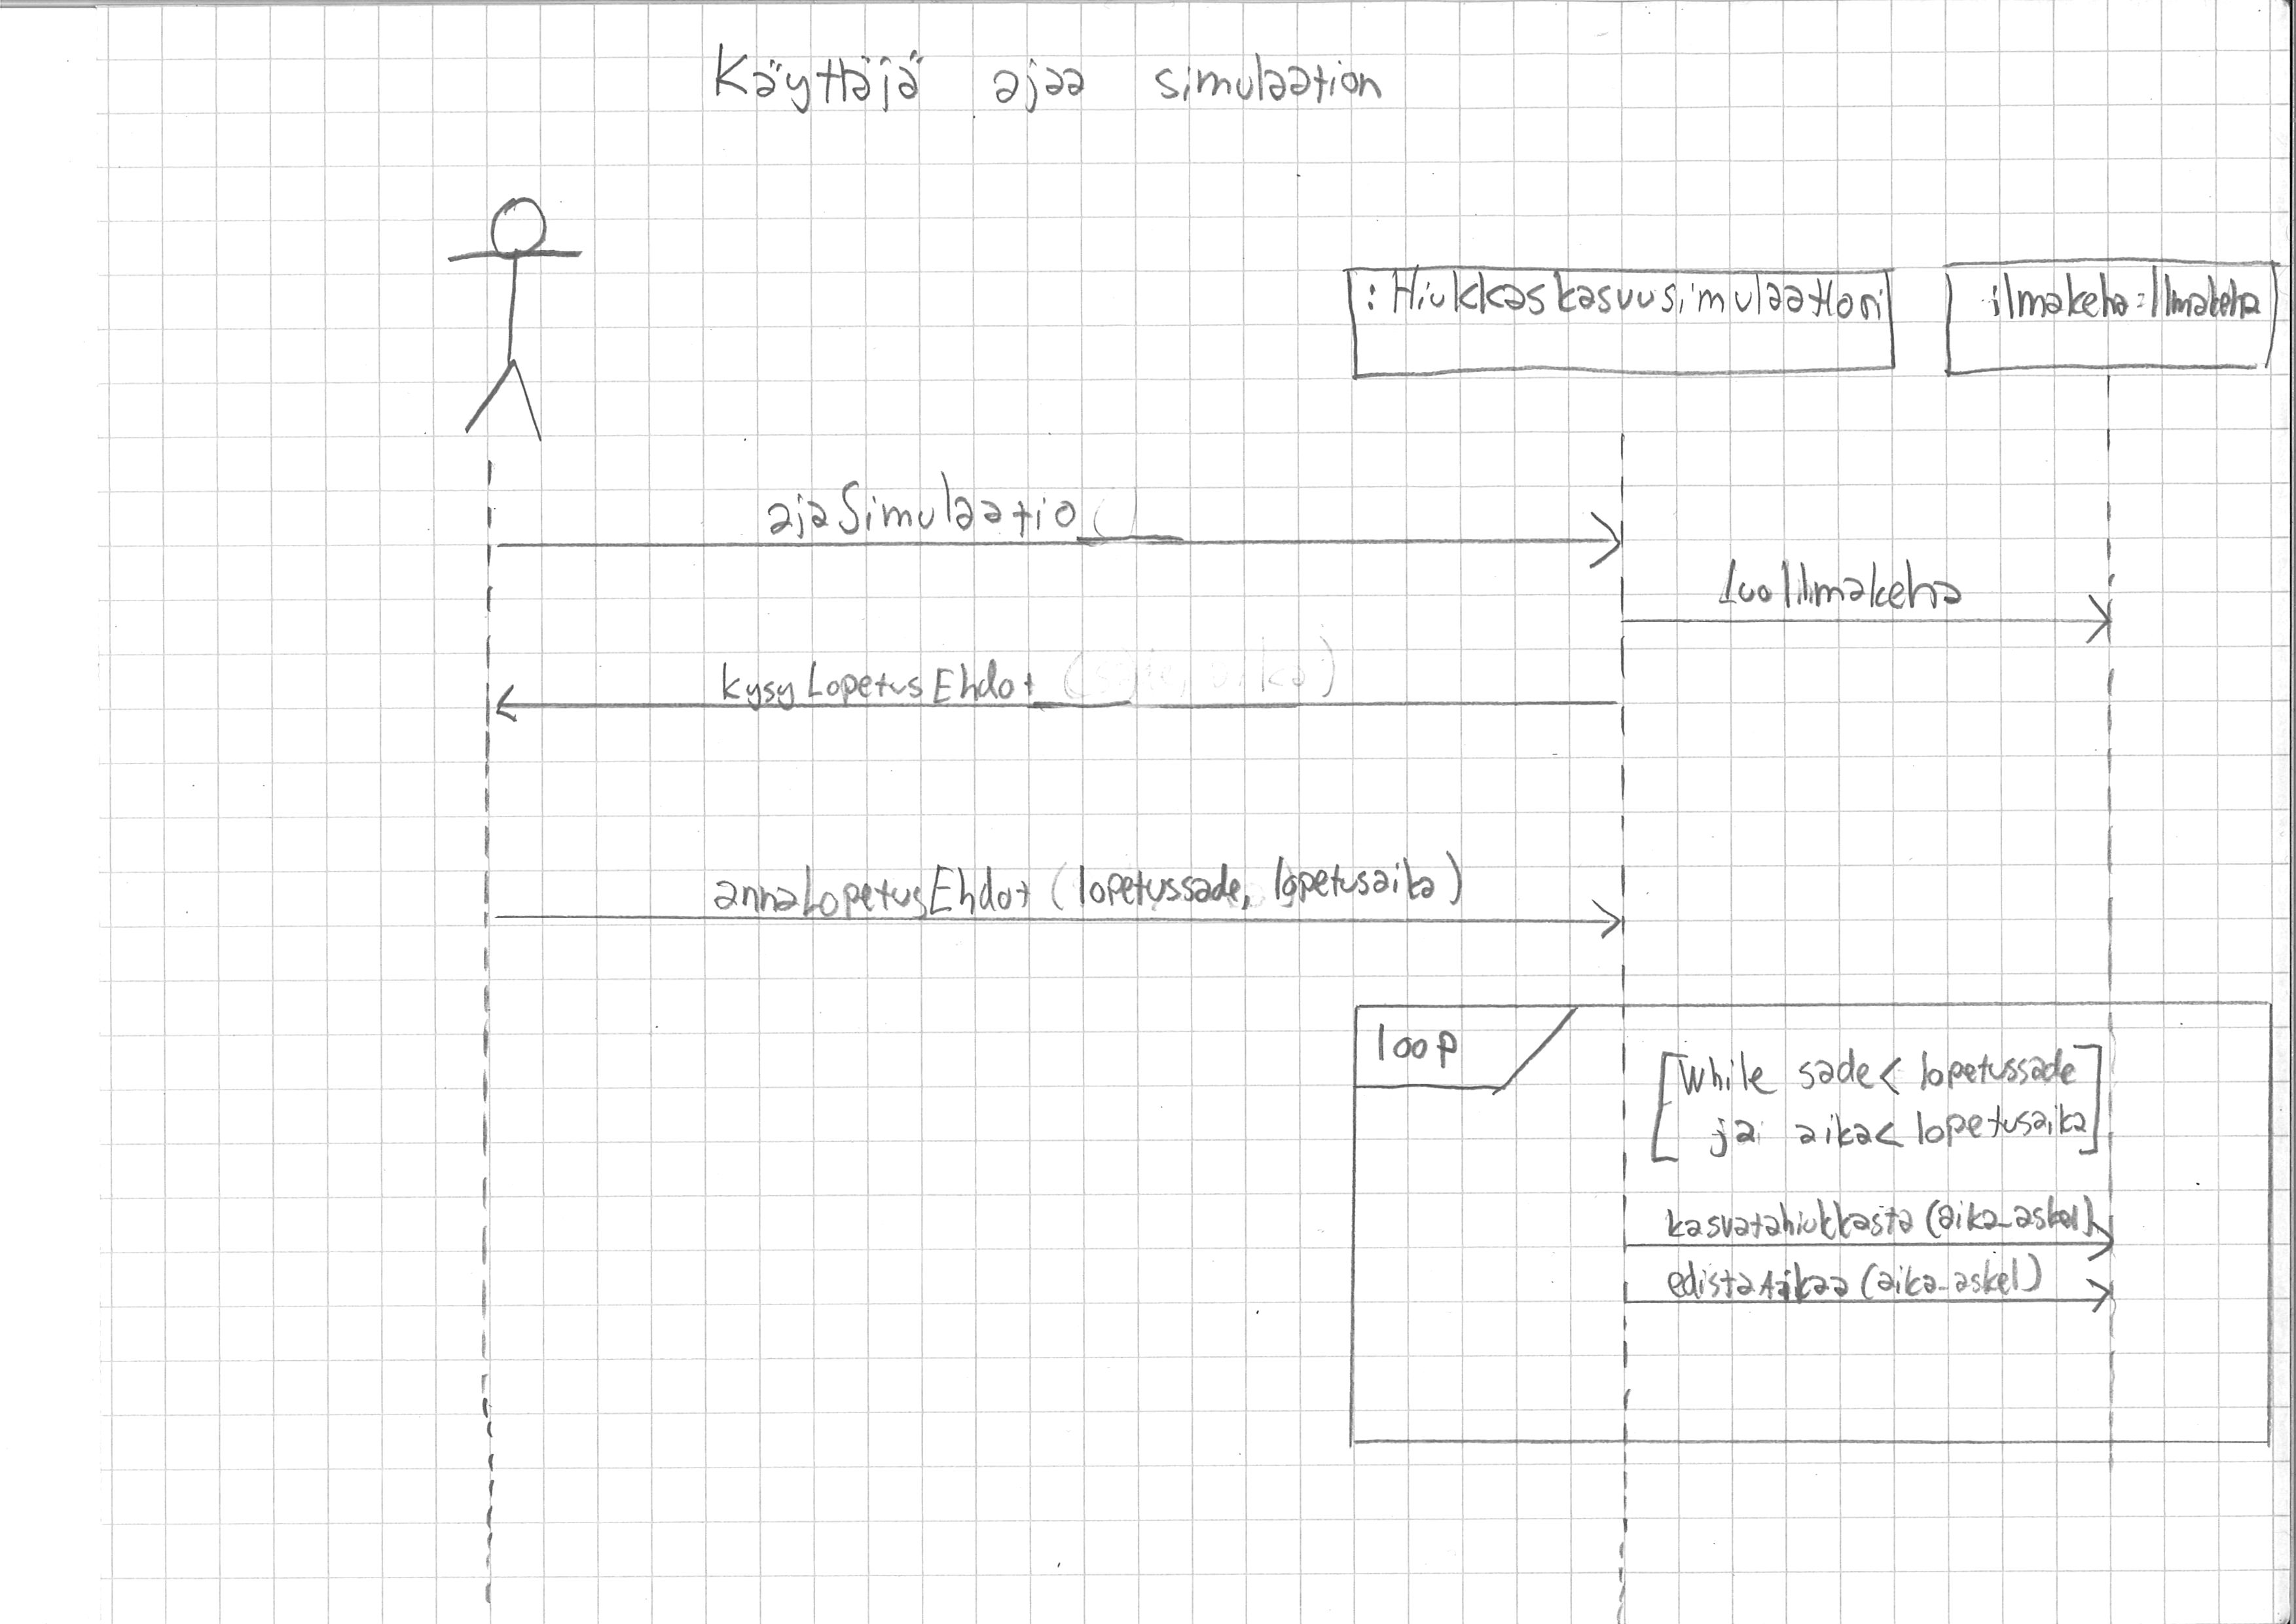 Käyttäjä ajaa simulaation
:Hiukkaskasvusimulaattori
ilmakeha:Ilmakeha
ajaSimulaatio
luoIlmakeha
kysyLopetusEhdot
annaLopetusEhdot (lopetussade, lopetusaika)
loop
[While sade < lopetussade
ja aika < lopetusaika]
kasvatahiukkasta (aika_askel)
edistaAikaa (aika_askel)